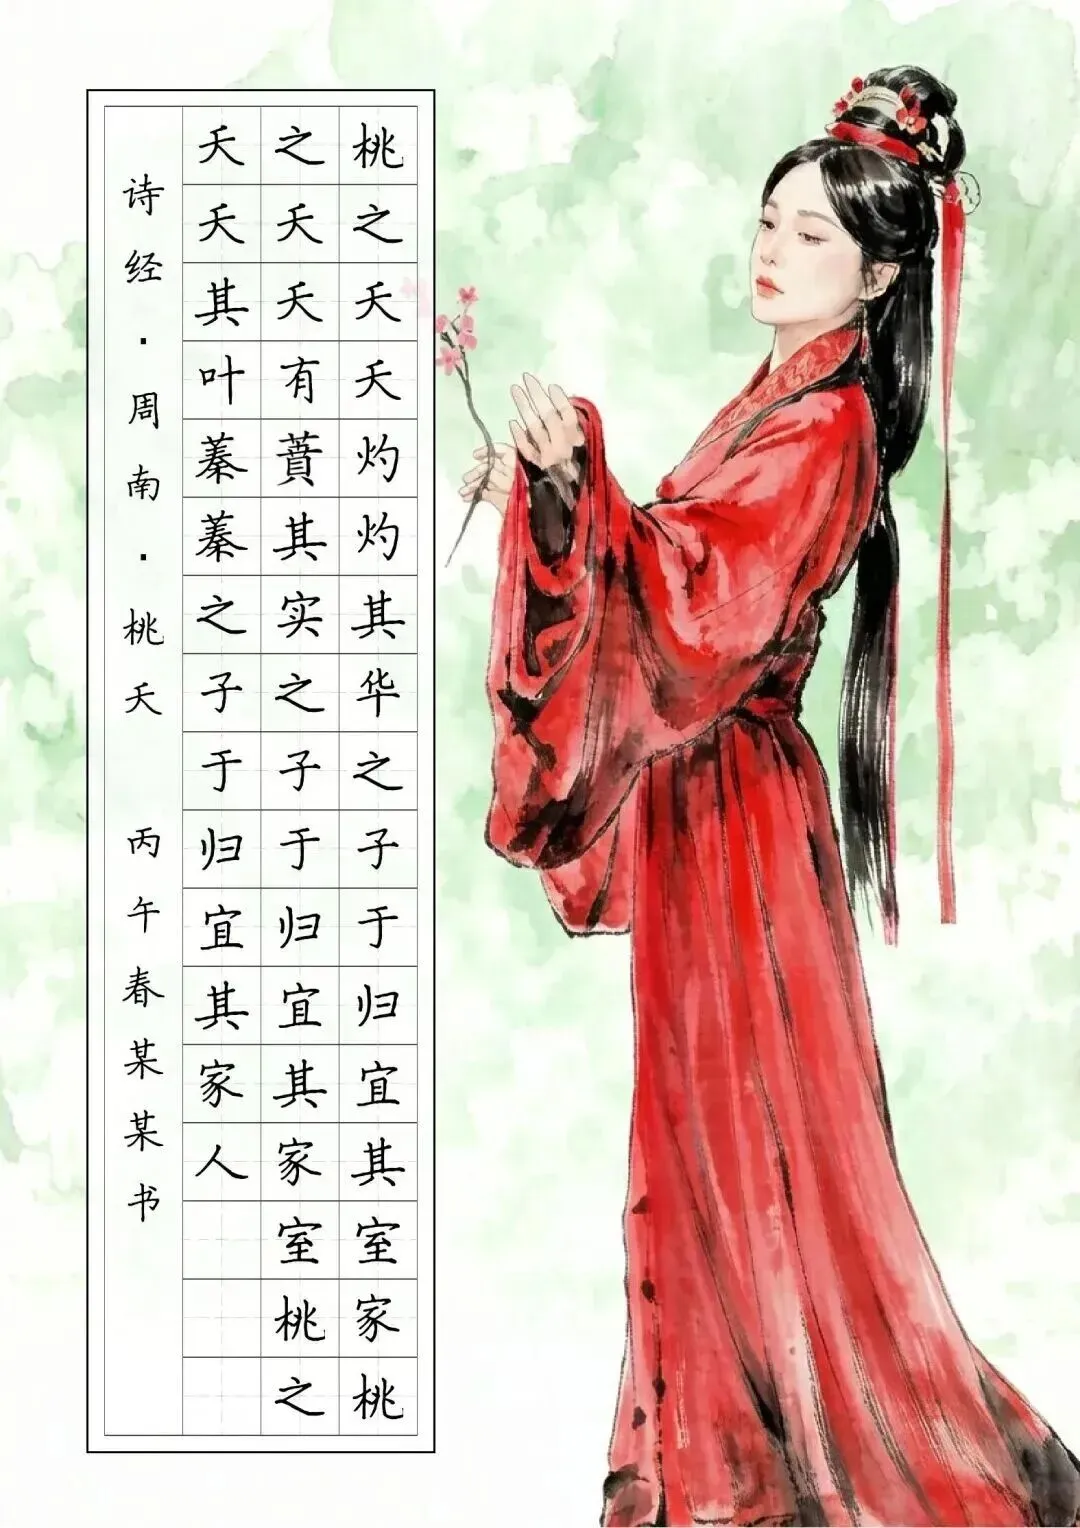 桃之夭夭灼灼其华之子于归宜其室家桃
之夭夭有蕡其实之子于归宜其家室桃之
夭夭其叶蓁蓁之子于归宜其家人
诗经·周南·桃夭 丙午春某某书